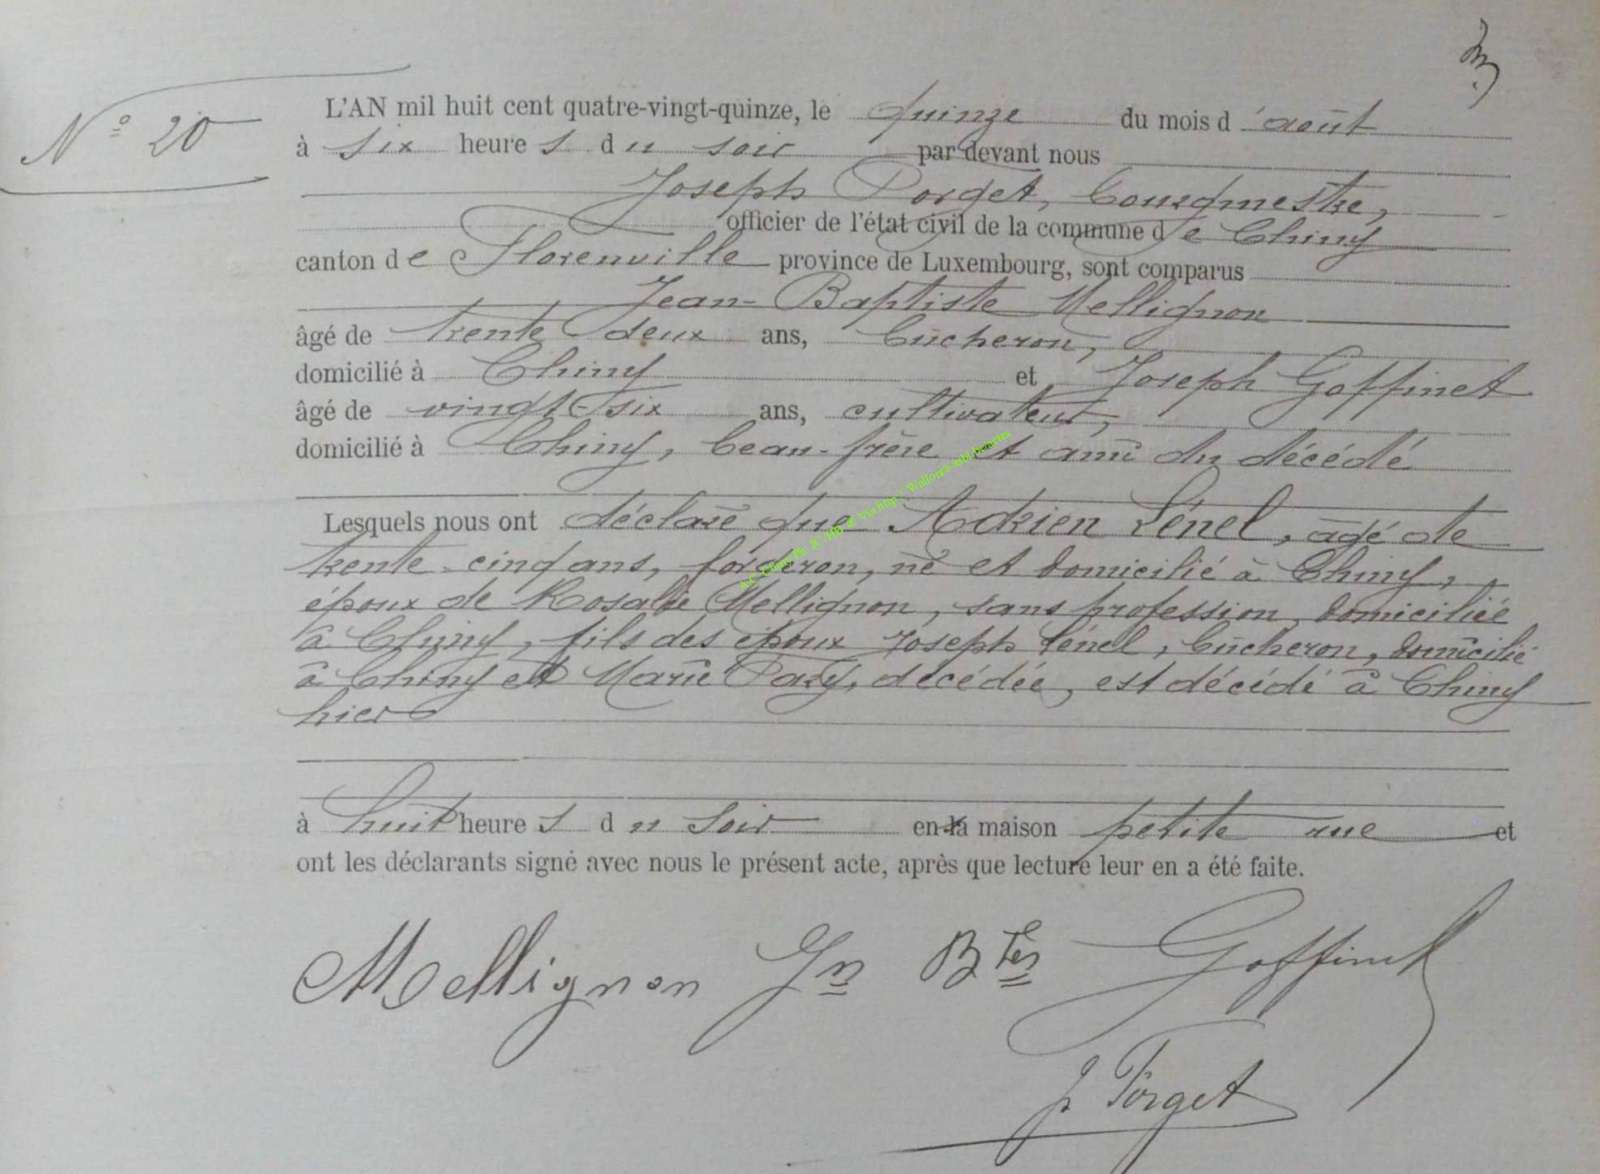 N° 20
L'AN mil huit cent quatre-vingt-quinze, le quinze du mois d'août
à six heures du soir par devant nous
Joseph Forget, bourgmestre,
officier de l'état civil de la commune de Chiny
canton de Florenville province de Luxembourg, sont comparus
Jean-Baptiste Mellignon
âgé de trente deux ans, bûcheron,
domicilié à Chiny et Joseph Goffinet
âgé de vingt-six ans, cultivateur,
domicilié à Chiny, beau-frère et ami du décédé
Lesquels nous ont déclaré que Adrien Lénel, âgé de
trente-cinq ans, forgeron, né et domicilié à Chiny,
époux de Rosalie Mellignon, sans profession, domiciliée
à Chiny, fils des époux Joseph Lénel, bûcheron, domicilié
à Chiny et Marie, décédée, est décédé à Chiny
hier
à huit heures du soir en la maison petite rue et
ont les déclarants signé avec nous le présent acte, après que lecture leur en a été faite.
Mellignon Jn Bte Goffinet
J Forget